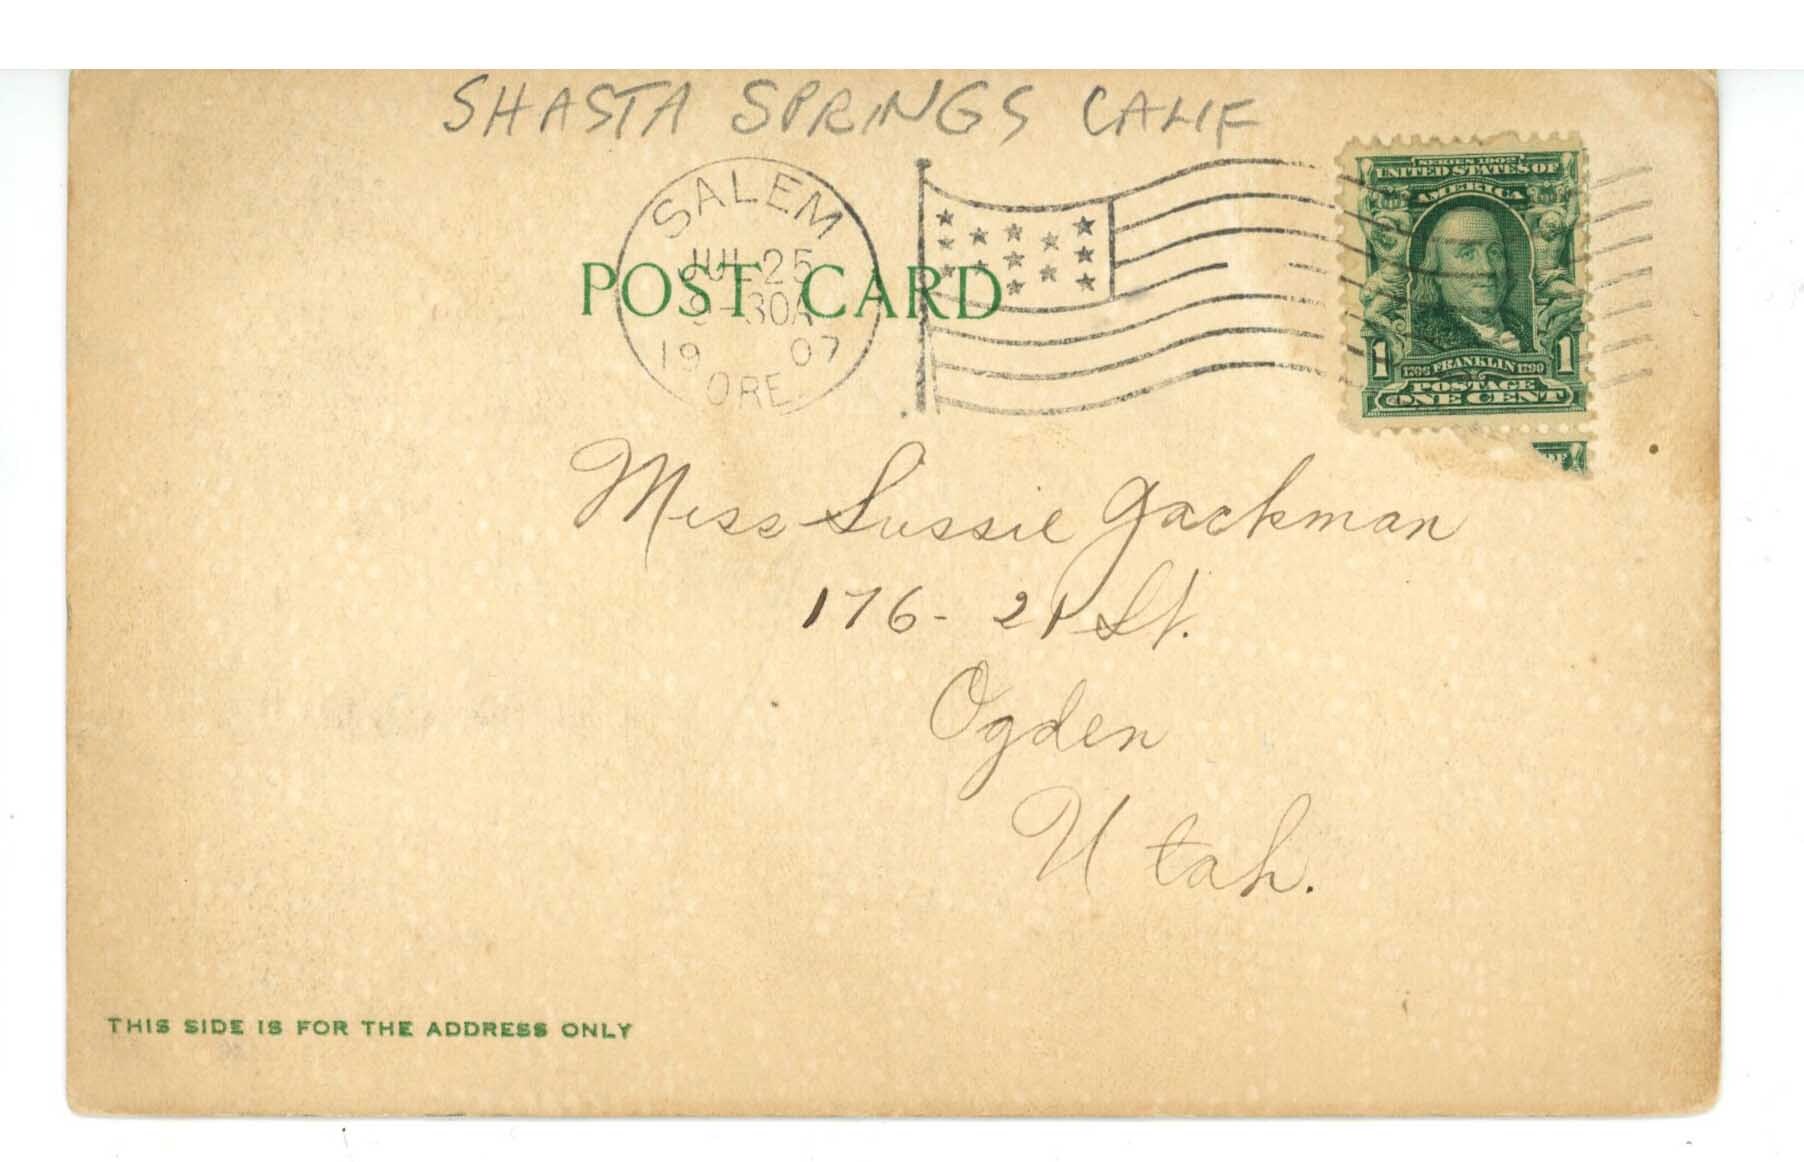 SHASTA SPRINGS CALIF
SALEM
JUL 25
9-30A
19 07
ORE.
POST CARD
SERIES 1902
UNITED STATES OF
AMERICA
1 1706 FRANKLIN 1790 1
POSTAGE
ONE CENT
Miss Sussie Jackman
176- 21 St.
Ogden
Utah.
THIS SIDE IS FOR THE ADDRESS ONLY